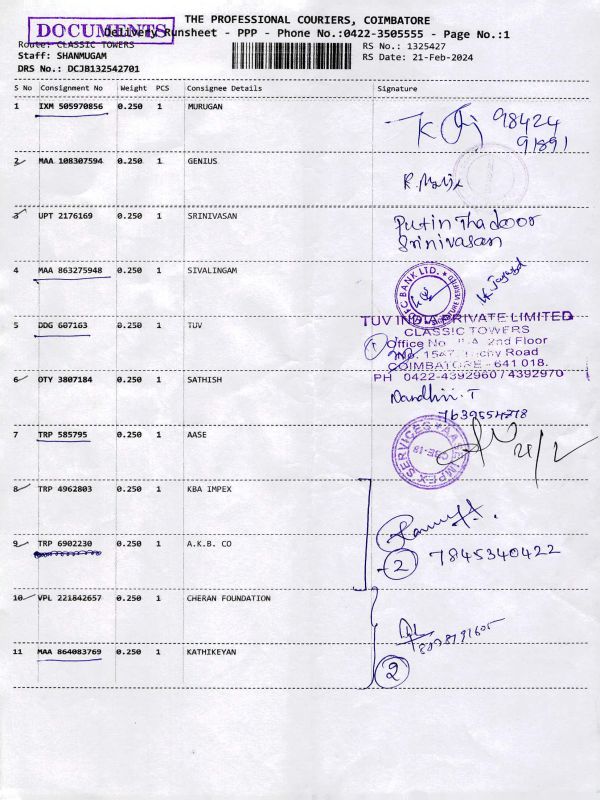 THE PROFESSIONAL COURIERS, COIMBATORE
DOCUMENTS
Delivery Runsheet - PPP - Phone No.:0422-3505555 - Page No.:1
Route: CLASSIC TOWERS
RS No.: 1325427
Staff: SHANMUGAM
RS Date: 21-Feb-2024
DRS No.: DCJB132542701
S No Consignment No Weight PCS Consignee Details Signature
1 IXM 505970856 0.250 1 MURUGAN
98424
91891
2 MAA 108307594 0.250 1 GENIUS
3 UPT 2176169 0.250 1 SRINIVASAN
Putin Thadoor
Srinivasan
4 MAA 863275948 0.250 1 SIVALINGAM
BANK LTD.
5 DDG 607163 0.250 1 TUV
TUV INDIA PRIVATE LIMITED
CLASSIC TOWERS
Office No 2nd Floor
No. 1547, Road
COIMBATORE - 641 018.
PH 0422-4392960 / 4392970
6 OTY 3807184 0.250 1 SATHISH
Nandhini. T
7639554278
7 TRP 585795 0.250 1 AASE
AASE IMPEX SERVICES
CBE-18
21/2
8 TRP 4962803 0.250 1 KBA IMPEX
9 TRP 6902230 0.250 1 A.K.B. CO
2 7845340422
10 VPL 221842657 0.250 1 CHERAN FOUNDATION
11 MAA 864083769 0.250 1 KATHIKEYAN
2